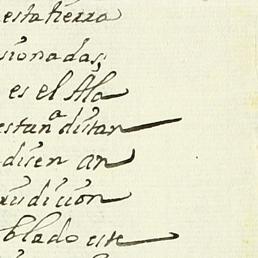 esta tierra
sionadas;
es el Ala
estan a distan
disen an
rudicion
oblado este